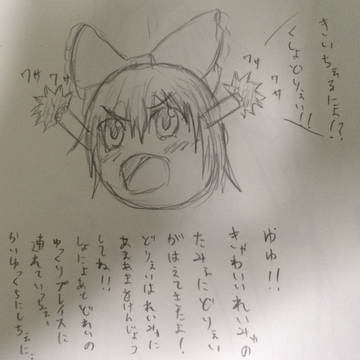 きいちぇるに!?
くしょどりぇい!!
ワサ
ワサ
ワサ
ワサ
ゆゆ!!
きゃわいいれいみゅの
たみぇにどりぇい
がはえてきたよ!
どりぇいはれいみゅに
あまあまをけんじょう
してね!!
しょによあとどれいの
ゆっくりプレイスに
連れていっちぇ、
かいゆっくちにしちぇに、